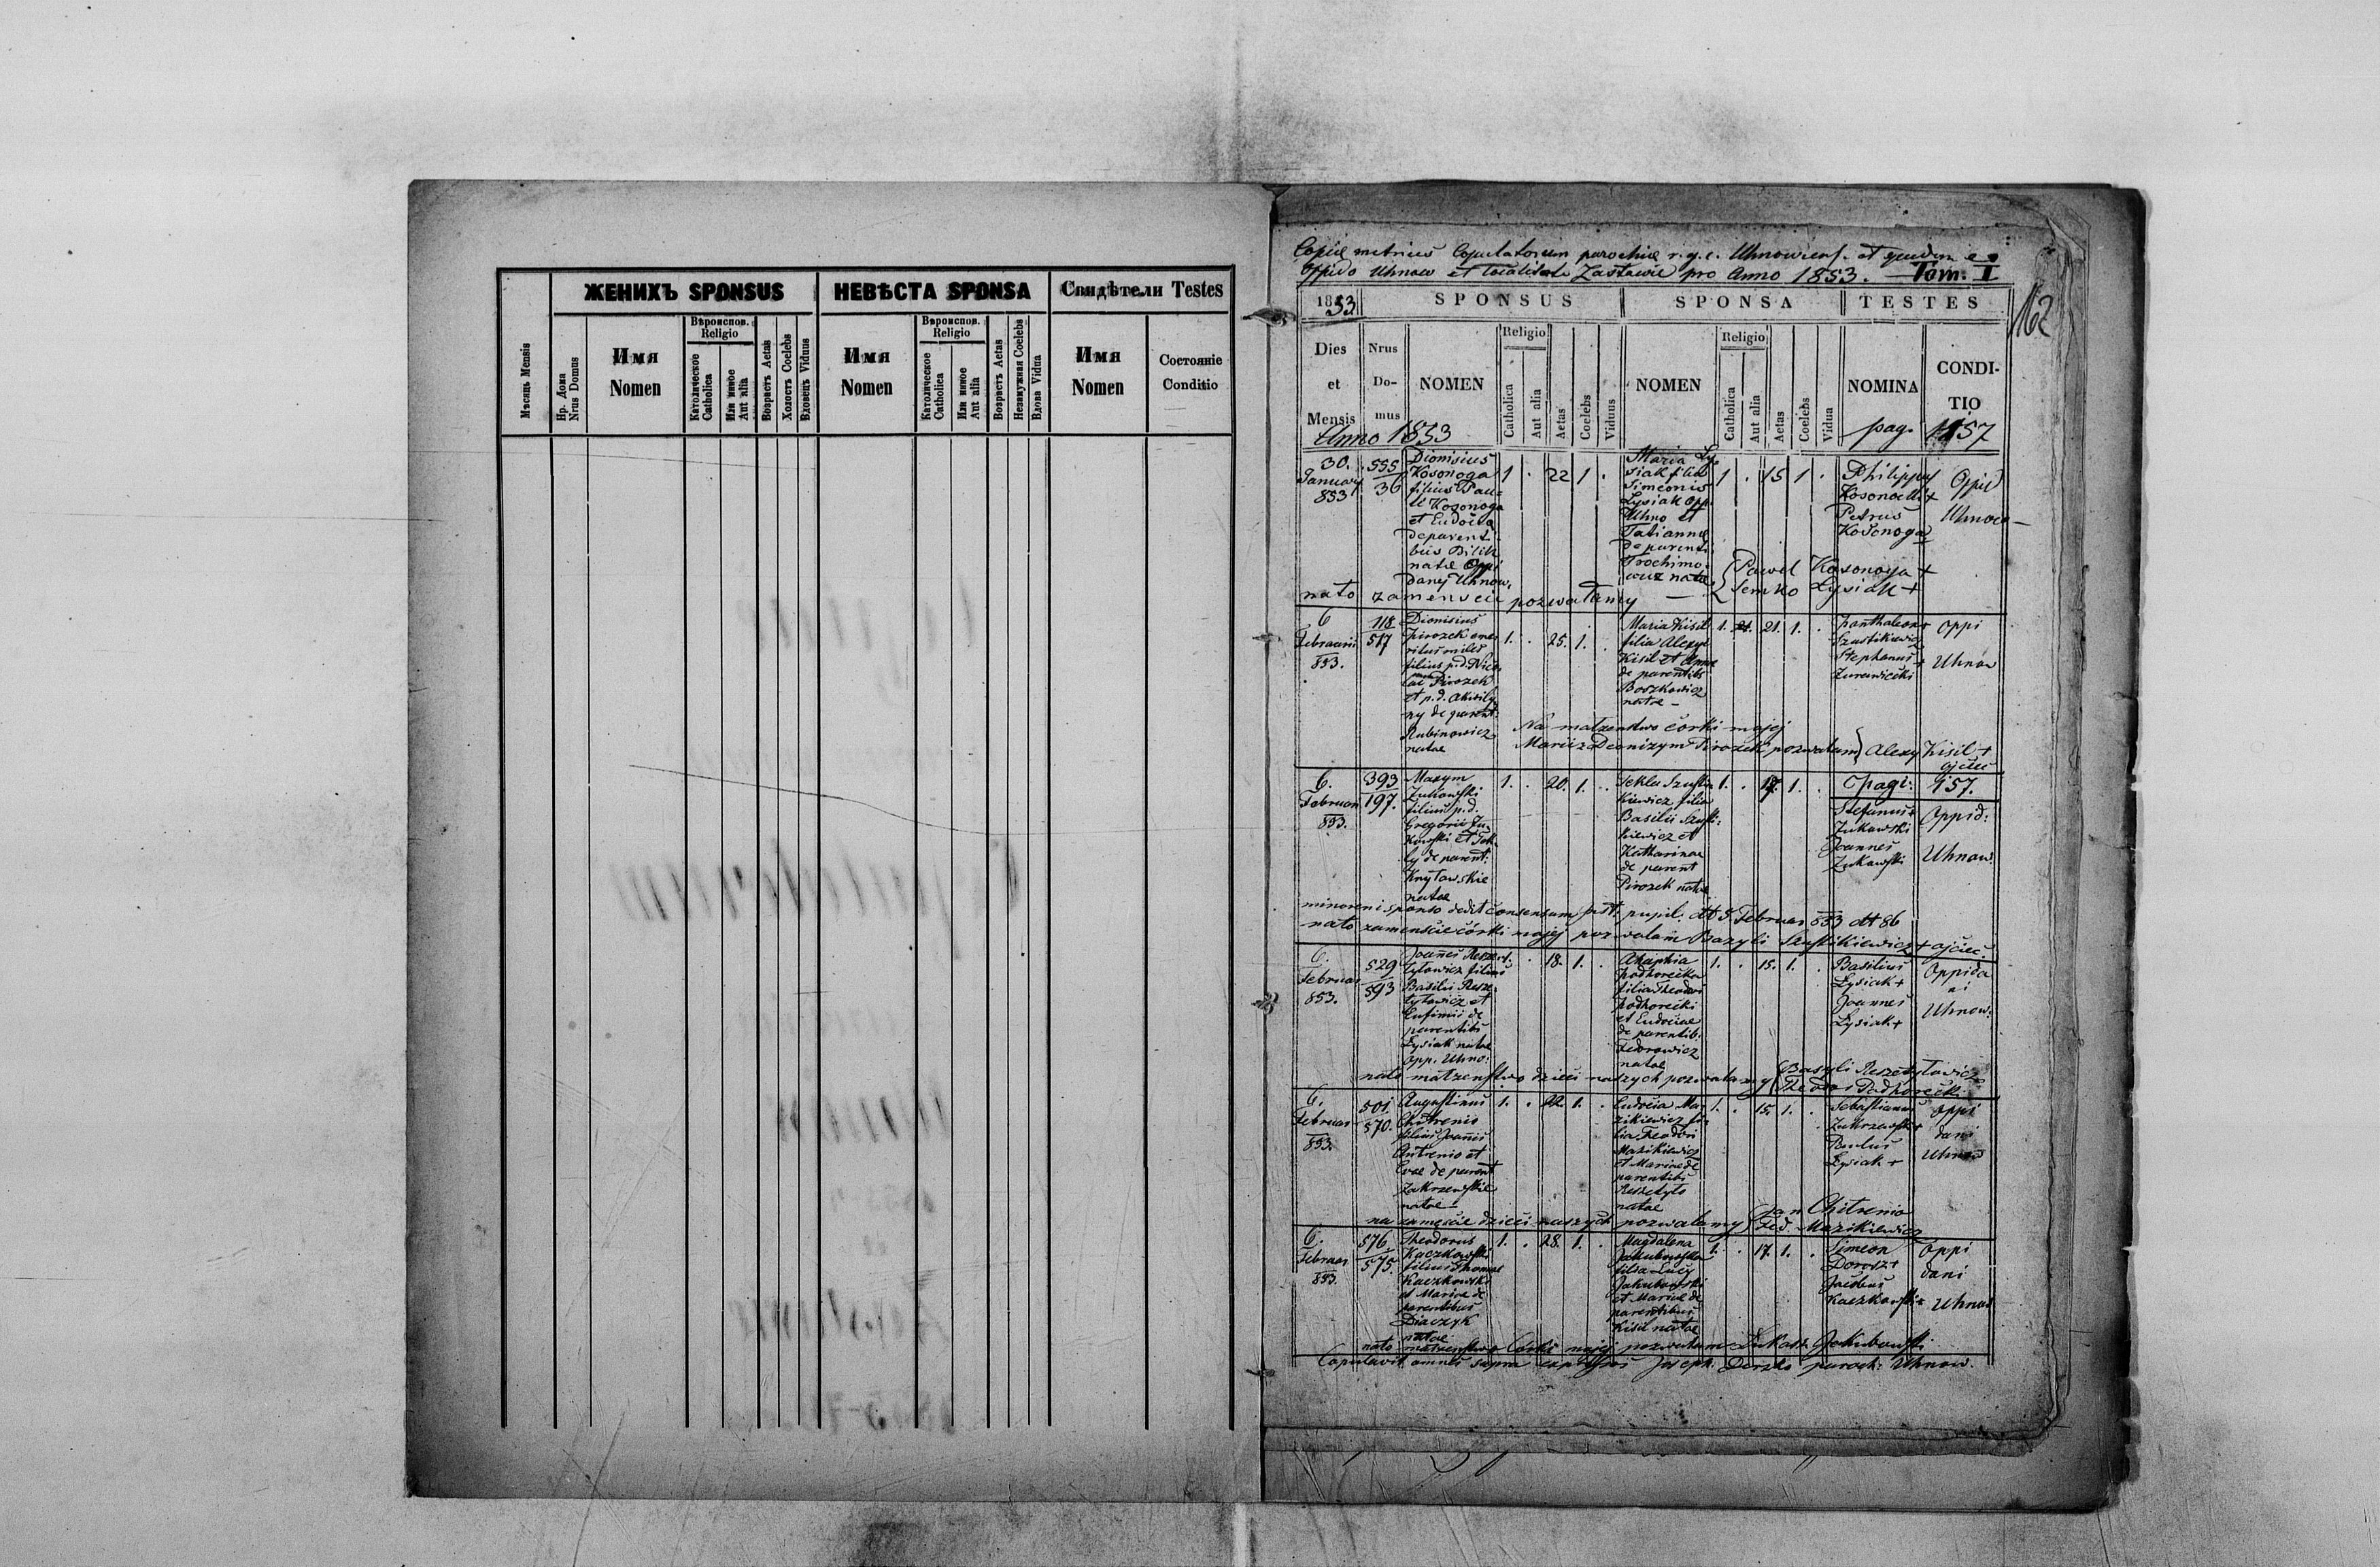 ЖЕНИХЪ SPONSUS
НЕВѢСТА SPONSA
Свидѣтели Testes
Мѣсяць Mensis
Нр. Дома
Nrus Domus
Имя
Nomen
Вѣроиспов.
Religio
Католическое
Catholica
Или инное
Aut alia
Возрастъ Aetas
Холостъ Coelebs
Вдовець Viduus
Имя
Nomen
Вѣроиспов.
Religio
Католическое
Catholica
Или инное
Aut alia
Возрастъ Aetas
Незамужная Coelebs
Вдова Vidua
Имя
Nomen
Состояніе
Conditio
Copia metrices Copulatorum parochiae r. g. c. Uhnoviens. et quidem e
Oppido Uhnow et localitate Zastawie pro Anno 1853. Tom. I
162
1853
SPONSUS
SPONSA
TESTES
Dies
et
Mensis
Nrus
Do-
mus
NOMEN
Religio
Catholica
Aut alia
Aetas
Coelebs
Viduus
NOMEN
Religio
Catholica
Aut alia
Aetas
Coelebs
Vidua
NOMINA
CONDI-
TIO
Anno 1853
pag. 157
30.
January
853
555
36
Dionisius
Kosonoga
filius Pau-
li Kosonoga
et Eudocia
de parent
bus Bilik
natae Oppi
dany Uhnow.
1 . 22 1 .
Maria Ly-
siak filia
Simeonis
Lysiak opp.
Uhno et
Tatianna
de parenti
Trochimo-
wicz natae
1 . 15 1 .
Philippus
Petrus
Kosonoga
Oppid
Uhnow
nato zamenscie pozwalamy
Pawel Kosonoga +
Semko Lysiak +
6
Februarii
853.
118
517
Dionisius
Pirozek eme-
ritus miles
filius p.d. Nico
lai Pirozek
et p.d. Akwily
ny de parent.
Rubinowicz
natae
1. . 25. 1. .
Maria Kisil
filia Alexy
Kisil et Anna
de parentibs
Boszkowicz
natae
1. 21. 1. .
Panthaleon +
Szustikiewicz
Stephanus +
Zurawiecki
Oppi
Uhnow
Na malzenstwo corki mojej
Marii z Deonizym Pirozek pozwalam Alexy Kisil +
ojciec
6.
Februar
853.
393
197.
Maxym
Zukowski
filius p.d.
Gregorii Zu-
kowski et Tek-
ly de parent.
Krylowskie
natae
1. . 20. 1. .
Tekla Szusti-
kiewicz filia
Basilii Szusti-
kiewicz et
Katharinae
de parent
Pirozek natae
1. . 17. 1. .
pagi: 157.
Stefanus +
Zukowski
Joannes
Zukowski
Oppid:
Uhnow.
minoreni sponso dedit consensum Inst. pupil. dt 5 Februar 853 dt 86
nato zamenscie corki mojej pozwalam Bazyli Szustikiewicz + ojciec.
6.
Februar
853.
529
593
Joannes Resze-
tylowicz filius
Basilii Resze-
tylowicz et
Eufimii de
parentibs
Lysiak natae
opp. Uhno:
. 18. 1. .
Ahaphia
Podhorecka
filia Theodori
Podhorecki
et Eudociae
de parentib:
Fedorowicz
natae
1. . 15. 1. .
Basilius
Lysiak +
Joannes
Lysiak +
Oppida
ni
Uhnow:
nato malzenstwo dzieci naszych pozwalamy
Basyli Reszetylowicz
Theodor Podhorecki
6.
Februar
853.
501.
570.
Augustinus
Chitrenio
filius Joannis
Chitrenio et
Evae de parent
Zakrzewskie
natae
1. . 22 1. .
Eudocia Ma-
zikiewicz fi-
lia Teodori
Mazikiewicz
et Mariae de
parentibs
Reszetylo
natae
1. . 15. 1. .
Sebastianus
Zakrzewski +
Paulus
Lysiak +
oppi
dani
Uhnow
na zamescie dzieci naszych pozwalamy
Jan Chitrenio
Fed. Mazikiewicz
6.
Februar
853.
576
575.
Theodorus
Kaczkowski
filius Thomas
Kaczkowski
et Mariae de
parentibus
Diaczyk
natae
1. . 28. 1. .
Magdalena
Jakubowska
filia Lucy
Jakubowski
et Mariae de
parentibus
Kisil natae
1. . 17. 1. .
Simeon
Dorosz +
Jacobus
Kaczkowski +
oppi
dani
Uhnow
nato malzenstwo Corki mojej pozwalam Lukasz Jakubowski
Copulavit omnes supra expressos Joseph. Derzko paroch. Uhnow.